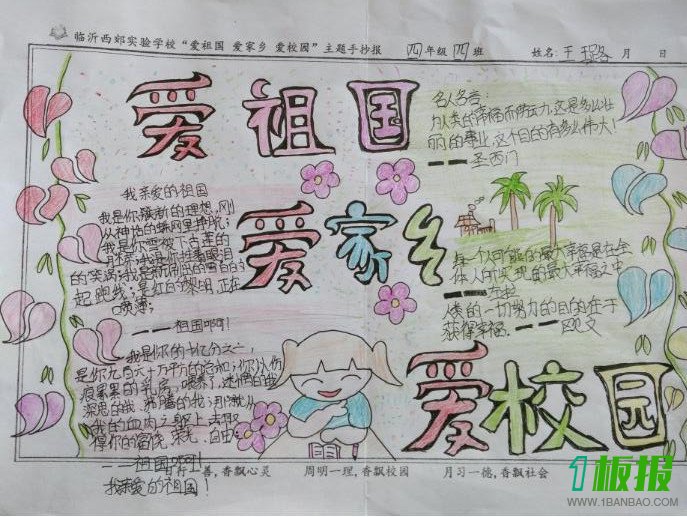 临沂西郊实验学校“爱祖国 爱家乡 爱校园”主题手抄报 四年级四班 姓名: 王 月 日
爱祖国
名人名言:
为人类的幸福而劳动,这是多么壮
丽的事业,这个目的有多么伟大!
——圣西门
我亲爱的祖国
我是你簇新的理想,刚
从神话的蛛网里挣脱;
我是你雪被下古莲的
胚芽;我是你挂着眼泪
的笑涡;我是新刷出的雪白的
起跑线;是绯红的黎明,正在
——祖国啊!
爱家乡
人类的一切努力的目的在于
获得幸福。——欧文
我是你的十亿分之一,
是你九百六十万平方的总和;你以伤
痕累累的乳房,喂养了,迷惘的我
深思的我、沸腾的我;那就从
我的血肉之躯上去取
得你的富饶、荣光、自由
——祖国啊!
我亲爱的祖国!
爱校园
日行一善,香飘心灵 周明一理,香飘校园 月习一德,香飘社会
1板报
WWW.1BANBAO.COM